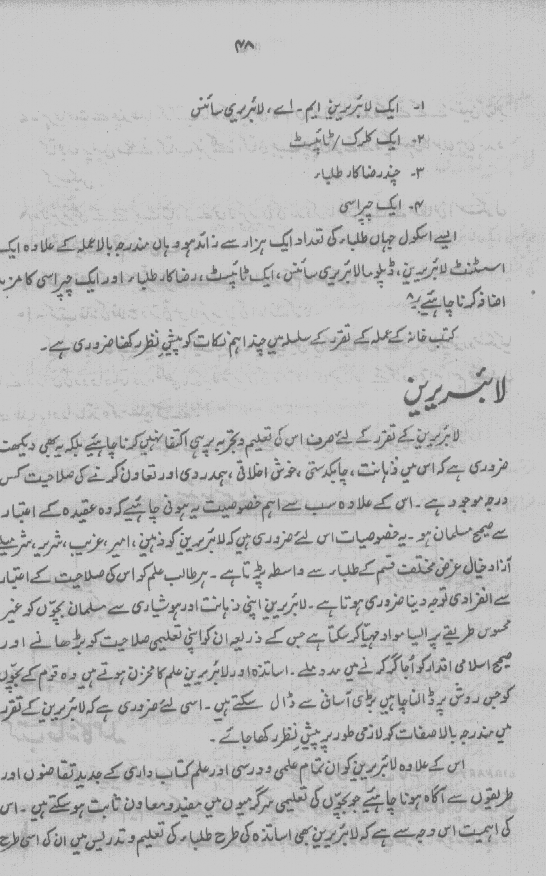 ۴۸
۱- ایک لائبریرین ایم۔اے، لائبریری سائنس
۲- ایک کلرک/ٹائپسٹ
۳- چند رضاکار طلباء
۴- ایک چپراسی
ایسے اسکول جہاں طلباء کی تعداد ایک ہزار سے زائد ہو وہاں مندرجہ بالا عملہ کے علاوہ ایک
اسسٹنٹ لائبریرین، ڈپلومالائبریری سائنس، ایک ٹائپسٹ، رضاکار طلباء اور ایک چپراسی کا مزید
اضافہ کرنا چاہئیے
کتب خانہ کے عملہ کے تقرر کے سلسلہ میں چند اہم نکات کو پیش نظر رکھنا ضروری ہے۔
لائبریرین
لائبریرین کے تقرر کے لئے صرف اس کی تعلیم و تجربہ پر ہی اکتفا نہیں کرنا چاہئیے بلکہ یہ بھی دیکھنا
ضروری ہے کہ اس میں ذہانت، چابکدستی، خوش اخلاقی، ہمدردی اور تعاون کرنے کی صلاحیت کس
درجہ موجود ہے۔ اس کے علاوہ سب سے اہم خصوصیت یہ ہونی چاہئیے کہ وہ عقیدہ کے اعتبار
سے صحیح مسلمان ہو۔ یہ خصوصیات اس لئے ضروری ہیں کہ لائبریرین کو ذہین، امیر، غریب، شریر، شرمیلے
آزاد خیال غرض مختلف قسم کے طلباء سے واسطہ پڑتا ہے۔ ہر طالب علم کو اس کی صلاحیت کے اعتبار
سے انفرادی توجہ دینا ضروری ہوتا ہے۔ لائبریرین اپنی ذہانت اور ہوشیاری سے مسلمان بچّوں کو غیر
محسوس طریقے پر ایسا مواد مہیّا کرسکتا ہے جس کے ذریعہ ان کو اپنی تعلیمی صلاحیت کو بڑھانے اور
صحیح اسلامی اقدار کو اُجاگر کرنے میں مدد ملے۔ اساتذہ اور لائبریرین علم کا مخزن ہوتے ہیں وہ قوم کے بچّوں
کو جس روش پر ڈالنا چاہیں بڑی آسانی سے ڈال سکتے ہیں۔ اسی لئے ضروری ہے کہ لائبریرین کے تقرر
میں مندرجہ بالا صفات کو لازمی طور پر پیش نظر رکھا جائے۔
اس کے علاوہ لائبریرین کو ان تمام علمی و درسی اور علم کتاب داری کے جدید تقاضوں اور
طریقوں سے آگاہ ہونا چاہئیے جو بچّوں کی تعلیمی سرگرمیوں میں مفید و معاون ثابت ہوسکتے ہیں۔ اس
کی اہمیت اس وجہ سے ہے کہ لائبریرین بھی اساتذہ کی طرح طلباء کی تعلیم و تدریس میں ان کی اسی طرح